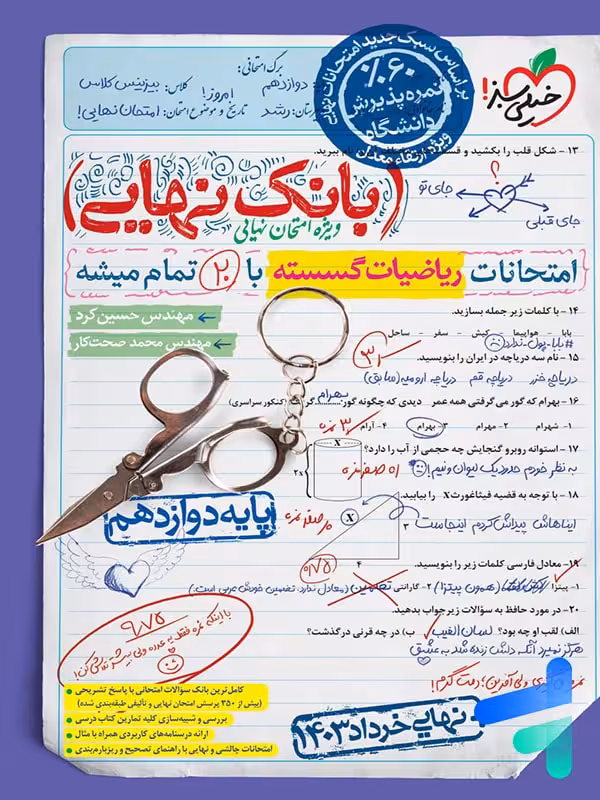 خیلی سبز!
براساس سبک جدید امتحانات نهایی
۶۰٪
نمره پذیرش
دانشگاه
ویژه ارتقاء معدل
برگ امتحانی:
دوازدهم
کلاس: بیزینس کلاس
امروز!
رشد
تاریخ و موضوع امتحان: امتحان نهایی!
۱۳ – شکل قلب را بکشید و
نام ببرید.
؟
جای تو
جای قبلی
(بانک نهایی)
ویژه امتحان نهایی
امتحانات ریاضیات گسسته با ۲۰ تمام میشه
مهندس حسین کرد
مهندس محمد صحت‌کار
۱۴ – با کلمات زیر جمله بسازید.
بابا – هواپیما – کیش – سفر – ساحل
#بابا_پول_ندارد
۱۵ – نام سه دریاچه در ایران را بنویسید.
دریاچه خزر دریاچه قم دریاچه ارومیه (سابق)
۱۶ – بهرام که گور می گرفتی همه عمر دیدی که چگونه گور بهرام گرفت (کنکور سراسری)
۱– شهرام ۲– مهرام ۳– بهرام ۴– آرام
۱۷ – استوانه روبرو گنجایش چه حجمی از آب را دارد؟
به نظر خودم حدود یک لیوان و نیم!
X
2X
۱۸ – با توجه به قضیه فیثاغورث X را بیابید.
ایناهاش پیداش کردم اینجاست
X
۳
۴
پایه دوازدهم
۱۹– معادل فارسی کلمات زیر را بنویسید.
۱– پیتزا
(همون پیتزا) ۲– گارانتی تضمین (معادل ندارد. تضمین خودش عربی است.)
۲۰– در مورد حافظ به سؤالات زیر جواب بدهید.
الف) لقب او چه بود؟ لسان الغیب ب) در چه قرنی در گذشت؟
هرگز نمیرد آنکه دلش زنده شد به عشق
۹/۷۵
ولی آفرین؛ دمت گرم!
کامل‌ترین بانک سؤالات امتحانی با پاسخ تشریحی
(بیش از ۳۵۰ پرسش امتحان نهایی و تألیفی طبقه‌بندی شده)
بررسی و شبیه‌سازی کلیه تمارین کتاب درسی
ارائه درسنامه‌های کاربردی همراه با مثال
امتحانات چالشی و نهایی با راهنمای تصحیح و ریزبارم‌بندی
نهایی خرداد ۱۴۰۳